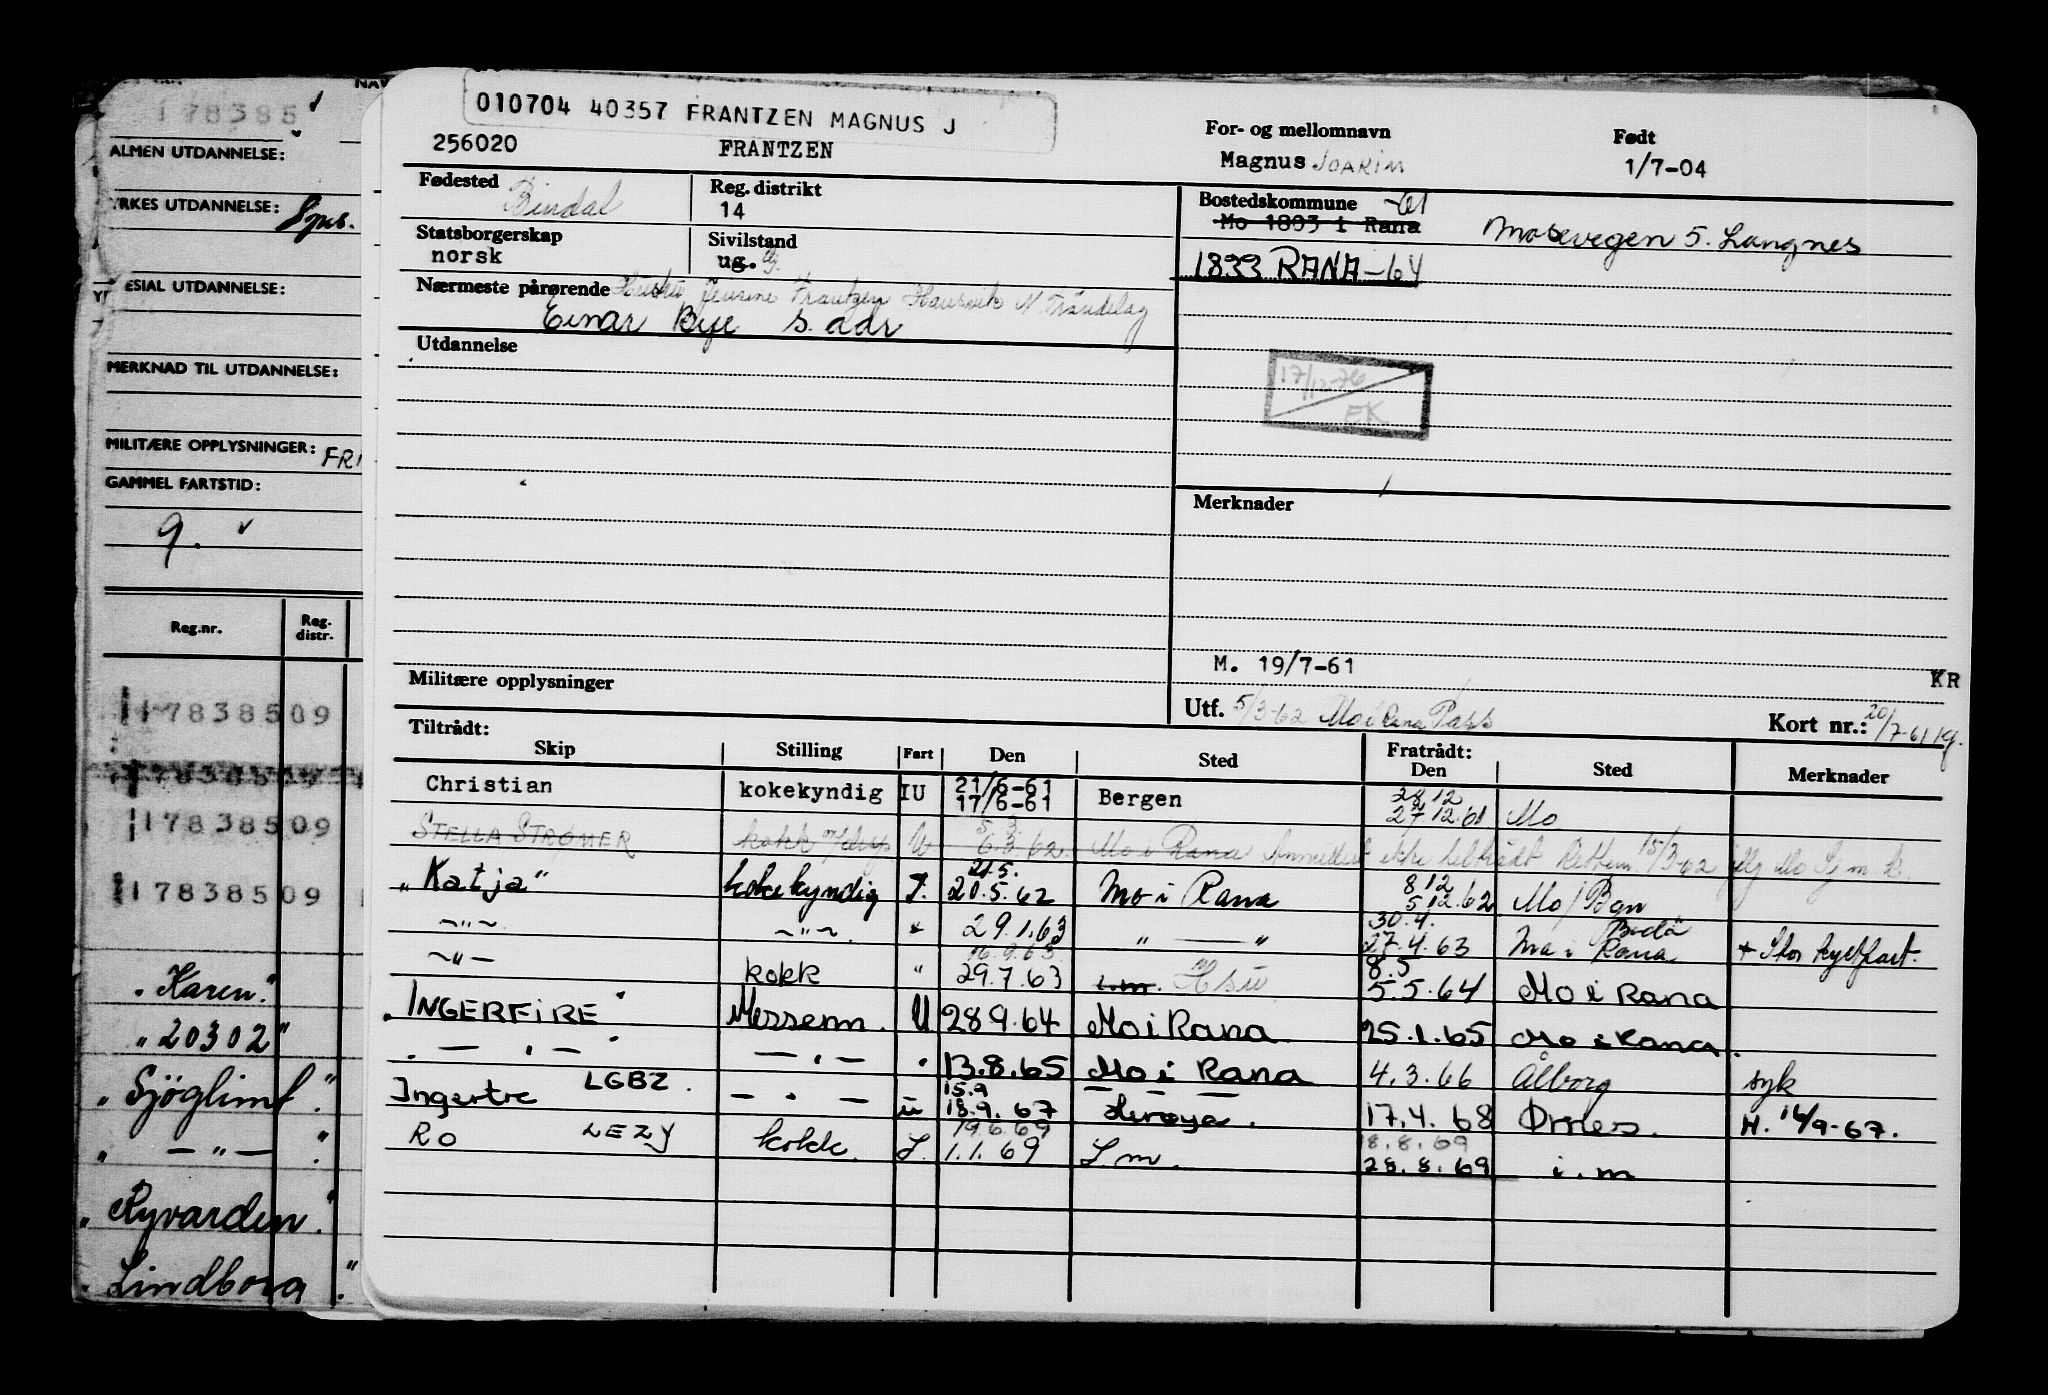 178385
ALMEN UTDANNELSE:
YRKES UTDANNELSE:
SPESIAL UTDANNELSE:
MERKNAD TIL UTDANNELSE:
MILITÆRE OPPLYSNINGER: FRI
GAMMEL FARTSTID:
9.
Reg.nr. Reg. distr.
17838509
17838509
17838509
17838509
"Karen"
"20302"
"Sjöglimt"
" — " — "
"Ryvarden"
"Lindborg"
010704 40357 FRANTZEN MAGNUS J
256020 FRANTZEN
For- og mellomnavn Født
Magnus JOAKIM 1/7-04
Fødested Bindal Reg. distrikt
14
Statsborgerskap Sivilstand
norsk ug. G.
Nærmeste pårørende Hustru Jensine Frantzen N. Trøndelag
Einar Bye s. adr
Utdannelse
Bostedskommune -61
Mo 1803 i Rana Mosevegen 5. Langnes
1833 RANA -64
17/12-76
FK
Merknader
M. 19/7-61 KR
Militære opplysninger
Utf. 5/3-62 Mo i Rana Pass Kort nr.: 20/7-61
Tiltrådt: Fratrådt:
Skip Stilling Fart Den Sted Den Sted Merknader
Christian kokekyndig IU 21/6-61 17/6-61 Bergen 28 12 27 12.61 Mo
STELLA STRØMER kokk U 5 3. 6.3 62 Mo i Rana Annullert ikke tiltrådt 15/3-62 Mo
"Katja" kokekyndig I. 21.5. 20.5.62 Mo i Rana 8 12 5 12.62 Mo/Bgn
~"~ ~"~ + 29.1.63 " — " 30.4. 27.4.63 Bodö Mo i Rana + Stor kystfart.
~"~ kokk " 16.9.63 29.7.63 i.m. 8.5 5.5.64 Mo i Rana
"INGERFIRE" Messem. U 28 9.64 Mo i Rana 25.1.65 Mo i Rana.
" — " — " — " — " 13.8.65 Mo i Rana 4.3.66 Ålborg syk
Ingertre LGBZ — " — u 15.9 18.9.67 Herøya. 17.4.68 Ørnes. H. 14/9-67.
RO LEZY kokk. I. 19.6.69 1.1.69 I.m. 18.8.69 28.8.69 i.m